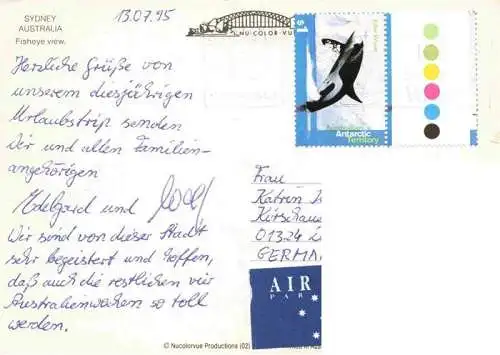 SYDNEY
AUSTRALIA
Fisheye view.
13.07.95
NU-COLOR-VUE
Herzliche Grüße von
unserem diesjährigen
Urlaubstrip senden
Dir und allen Familien-
angehörigen
Edelgard und
Wir sind von dieser Stadt
sehr begeistert und hoffen,
daß auch die restlichen vier
Australienwochen so toll
werden.
$1
Australian
Antarctic
Territory
Frau
Katrin
01324
GERMA
AIR
PAR
© Nucolorvue Productions (02)